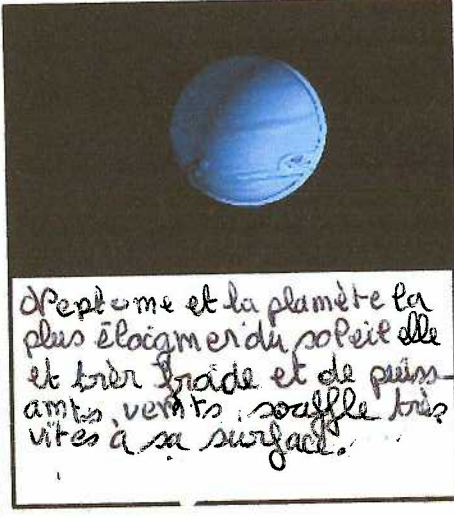 Neptune et la planète la
plus éloigner du soleil elle
et très froide et de puiss-
ants vents souffle très
vites à sa surface.